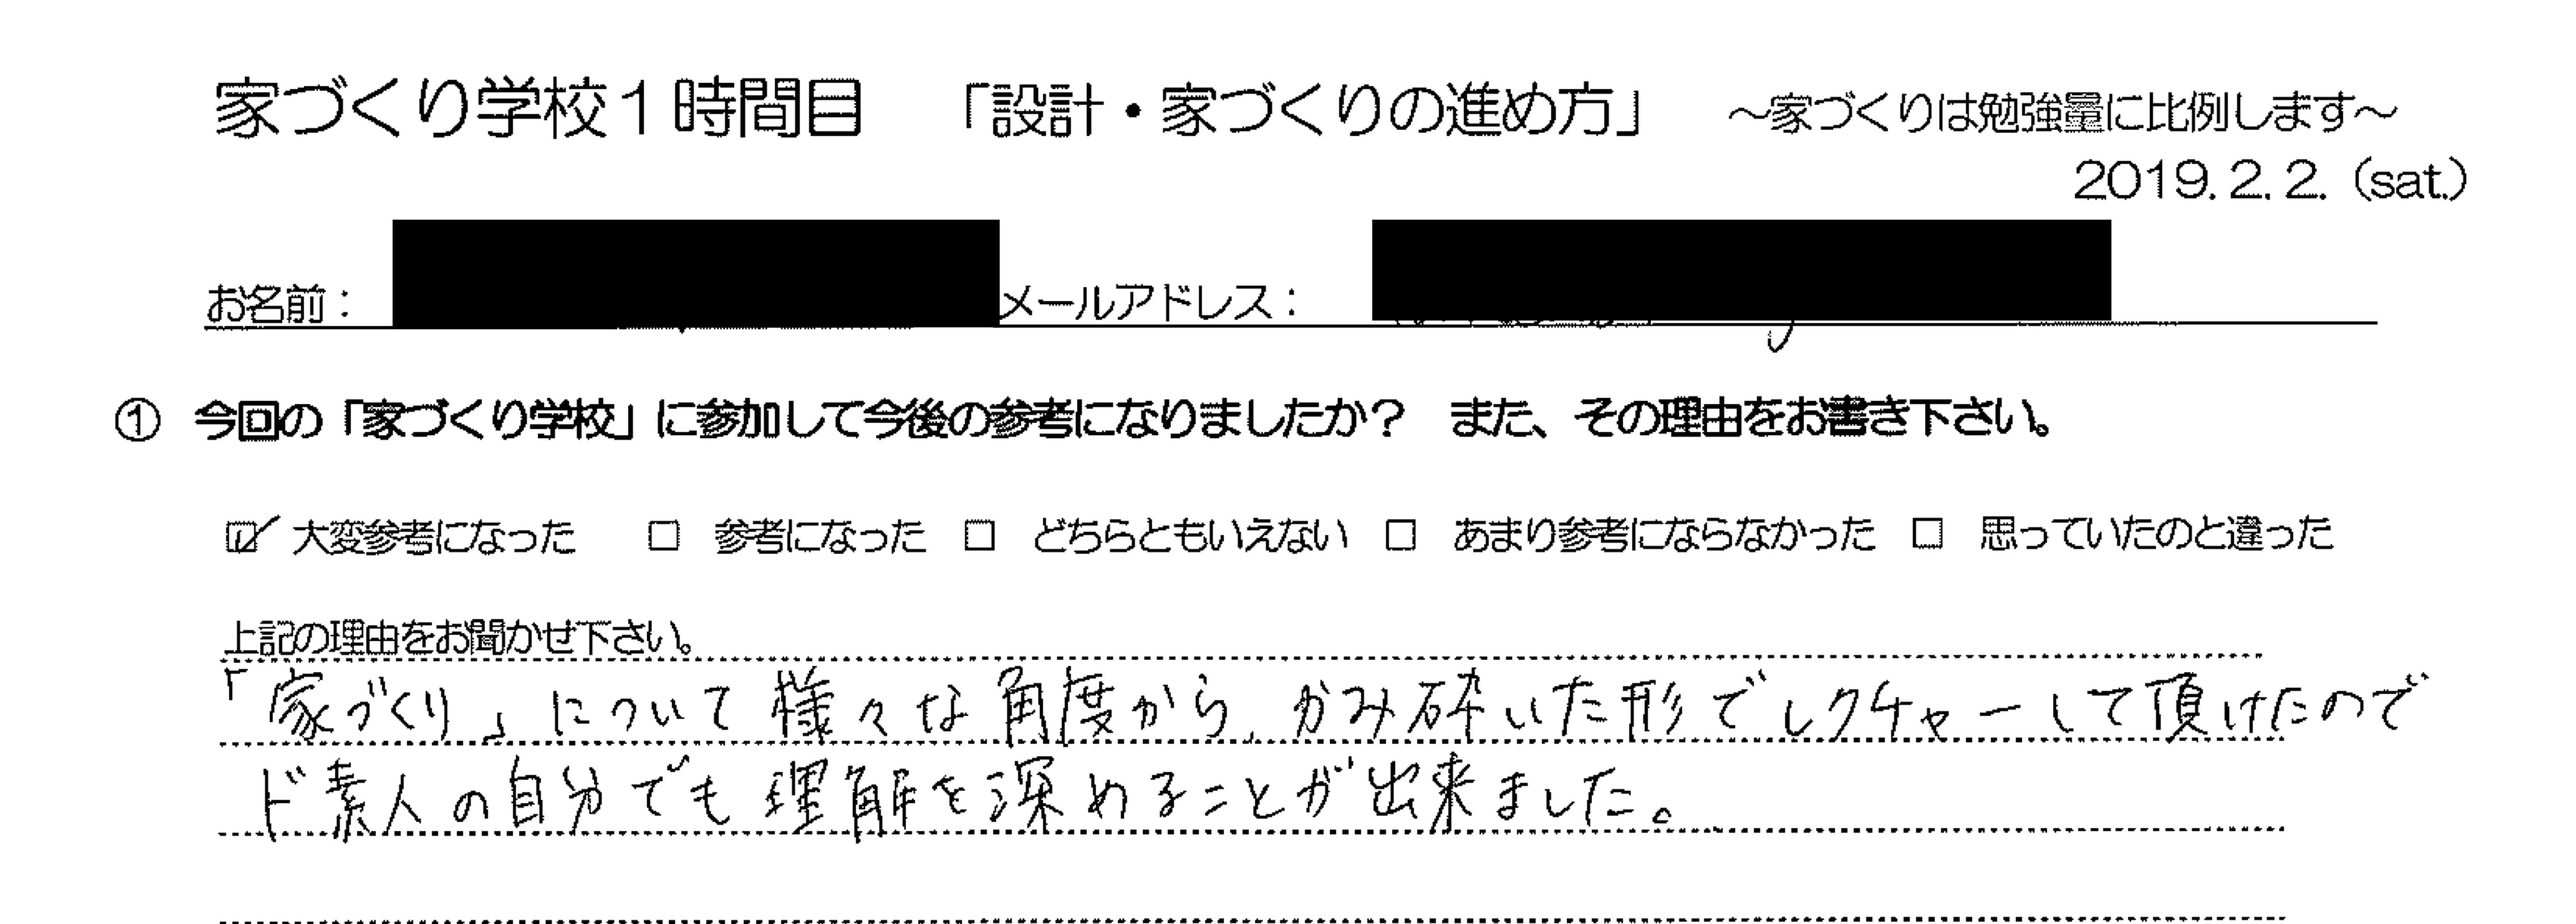 家づくり学校1時間目　「設計・家づくりの進め方」　～家づくりは勉強量に比例します～
2019.2.2.（sat.）
お名前：　メールアドレス：
① 今回の「家づくり学校」に参加して今後の参考になりましたか？　また、その理由をお書き下さい。
☑ 大変参考になった　□ 参考になった　□ どちらともいえない　□ あまり参考にならなかった　□ 思っていたのと違った
上記の理由をお聞かせ下さい。
「家づくり」について様々な角度から、かみ砕いた形でレクチャーして頂けたので
ド素人の自分でも理解を深めることが出来ました。